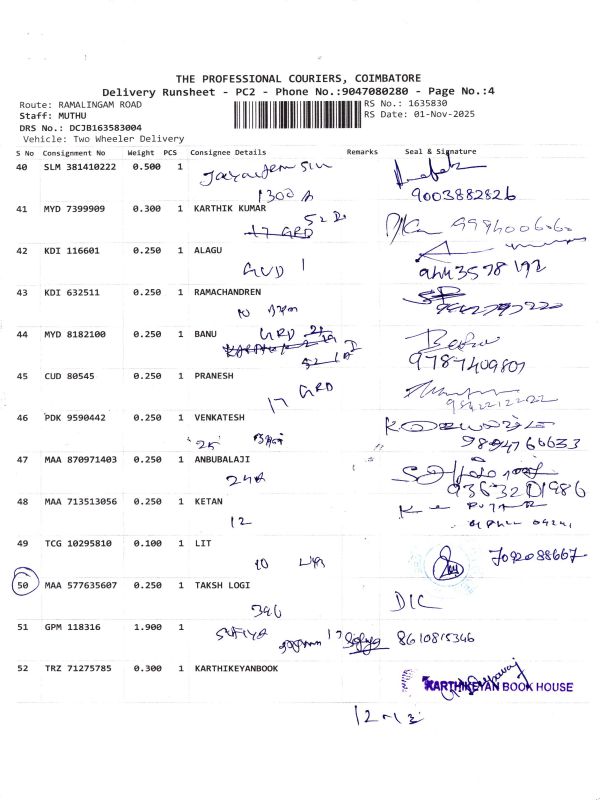 THE PROFESSIONAL COURIERS, COIMBATORE
Delivery Runsheet - PC2 - Phone No.:9047080280 - Page No.:4
Route: RAMALINGAM ROAD RS No.: 1635830
Staff: MUTHU RS Date: 01-Nov-2025
DRS No.: DCJB163583004
Vehicle: Two Wheeler Delivery
S No Consignment No Weight PCS Consignee Details Remarks Seal & Signature
40 SLM 381410222 0.500 1
1300 A 9003882826
41 MYD 7399909 0.300 1 KARTHIK KUMAR
17 GRD
42 KDI 116601 0.250 1 ALAGU
GUD 1 9443578192
43 KDI 632511 0.250 1 RAMACHANDREN
10
44 MYD 8182100 0.250 1 BANU GRD
9787409807
45 CUD 80545 0.250 1 PRANESH
17 GRD
46 PDK 9590442 0.250 1 VENKATESH
25 9894760633
47 MAA 870971403 0.250 1 ANBUBALAJI
24A 9363201986
48 MAA 713513056 0.250 1 KETAN
12
49 TCG 10295810 0.100 1 LIT 7092088667
10
50 MAA 577635607 0.250 1 TAKSH LOGI
396 DIC
51 GPM 118316 1.900 1
SUFIYA 8610815346
52 TRZ 71275785 0.300 1 KARTHIKEYANBOOK
KARTHIKEYAN BOOK HOUSE
12-13